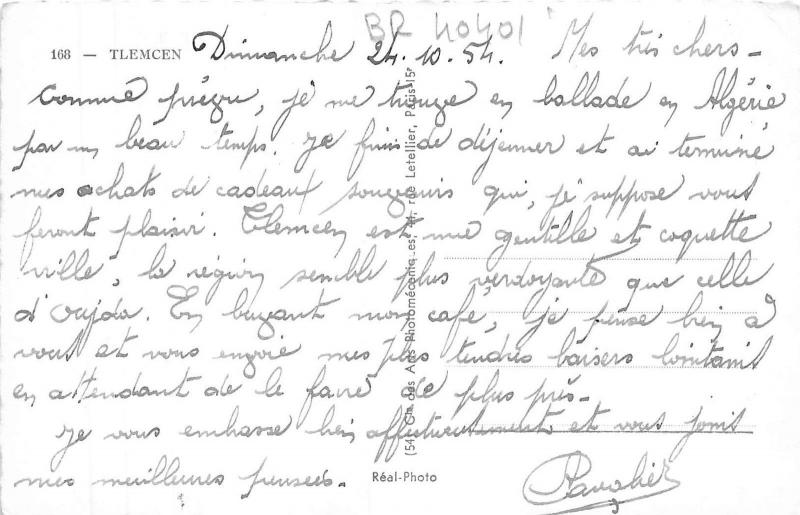 BR 40401
168 — TLEMCEN Dimanche 24.10.54. Mes très chers -
Comme prévu, je me trouve en ballade en Algérie
par un beau temps. Je finis de déjeuner et ai terminé
mes achats de cadeaux souvenirs qui, je suppose vous
feront plaisir. Tlemcen est une gentille et coquette
ville, la région semble plus verdoyante que celle
d'Oujda. En buvant mon café, je pense bien à
vous et vous envoie mes plus tendres baisers lointains
en attendant de le faire de plus près -
Je vous embrasse bien affectueusement et vous joins
mes meilleures pensées.
Réal-Photo
des Arts Photomécaniques, 44, rue Letellier, Paris-15e